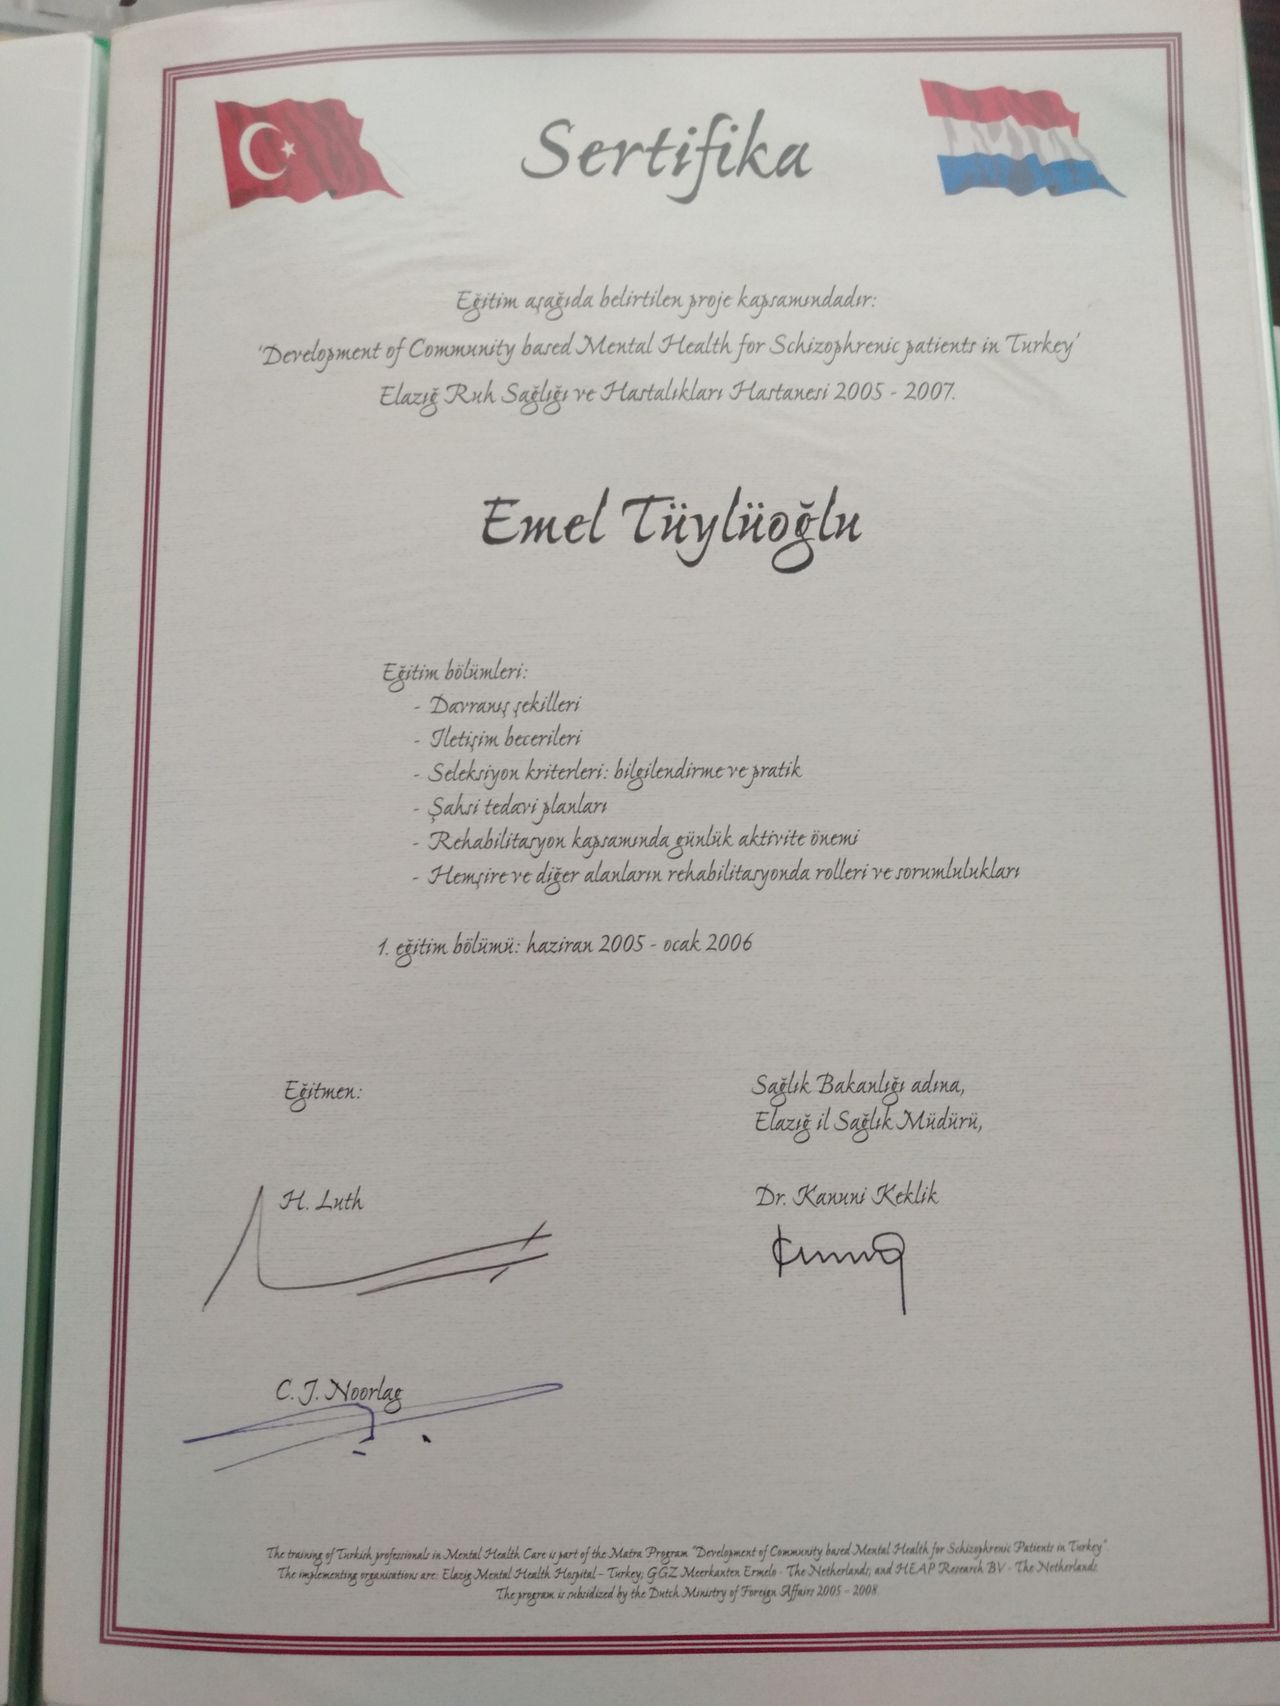 Sertifika
Eğitim aşağıda belirtilen proje kapsamındadır:
'Development of Community based Mental Health for Schizophrenic patients in Turkey'
Elazığ Ruh Sağlığı ve Hastalıkları Hastanesi 2005 - 2007.
Emel Tüylüoğlu
Eğitim bölümleri:
- Davranış şekilleri
- Iletişim becerileri
- Seleksiyon kriterleri: bilgilendirme ve pratik
- Şahsi tedavi planları
- Rehabilitasyon kapsamında günlük aktivite önemi
- Hemşire ve diğer alanların rehabilitasyonda rolleri ve sorumlulukları
1. eğitim bölümü: haziran 2005 - ocak 2006
Eğitmen:
Sağlık Bakanlığı adına,
Elazığ il Sağlık Müdürü,
H. Luth
Dr. Kanuni Keklik
C. J. Noorlag
The training of Turkish professionals in Mental Health Care is part of the Matra Program "Development of Community based Mental Health for Schizophrenic Patients in Turkey".
The implementing organisations are: Elazig Mental Health Hospital - Turkey; GGZ Meerkanten Ermelo - The Netherlands; and HEAP Research BV - The Netherlands.
The program is subsidized by the Dutch Ministry of Foreign Affairs 2005 - 2008